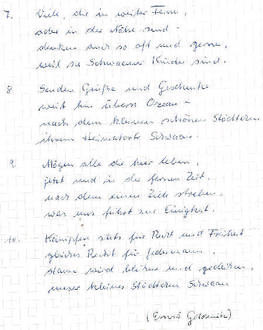 7. Viele, die in weiter Fern,
oder in der Nähe sind -
denken nur so oft und gerne,
weil sie Schwaaner Kinder sind.
8. Senden Grüße und Geschenke
weit hin übern Ozean -
nach dem kleinen schönen Städtchen
ihrem Heimatorte Schwaan.
9. Mögen alle die hier leben,
jetzt und in die fernen Zeit.
nach dem einen Ziele streben,
was uns führt zur Einigkeit.
10. Kämpfen stets für Recht und Freiheit
gleiches Recht für jedermann,
dann wird blühen und gedeihen,
unser kleines Städtchen Schwaan